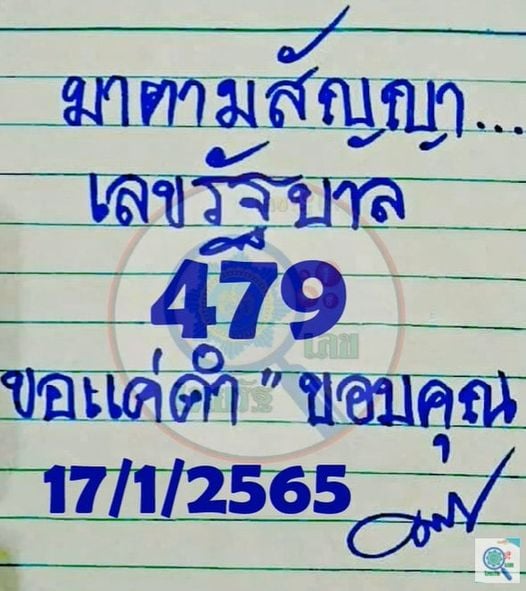 มาตามสัญญา...
เลขรัฐบาล
479
ขอแค่คำ"ขอบคุณ
17/1/2565